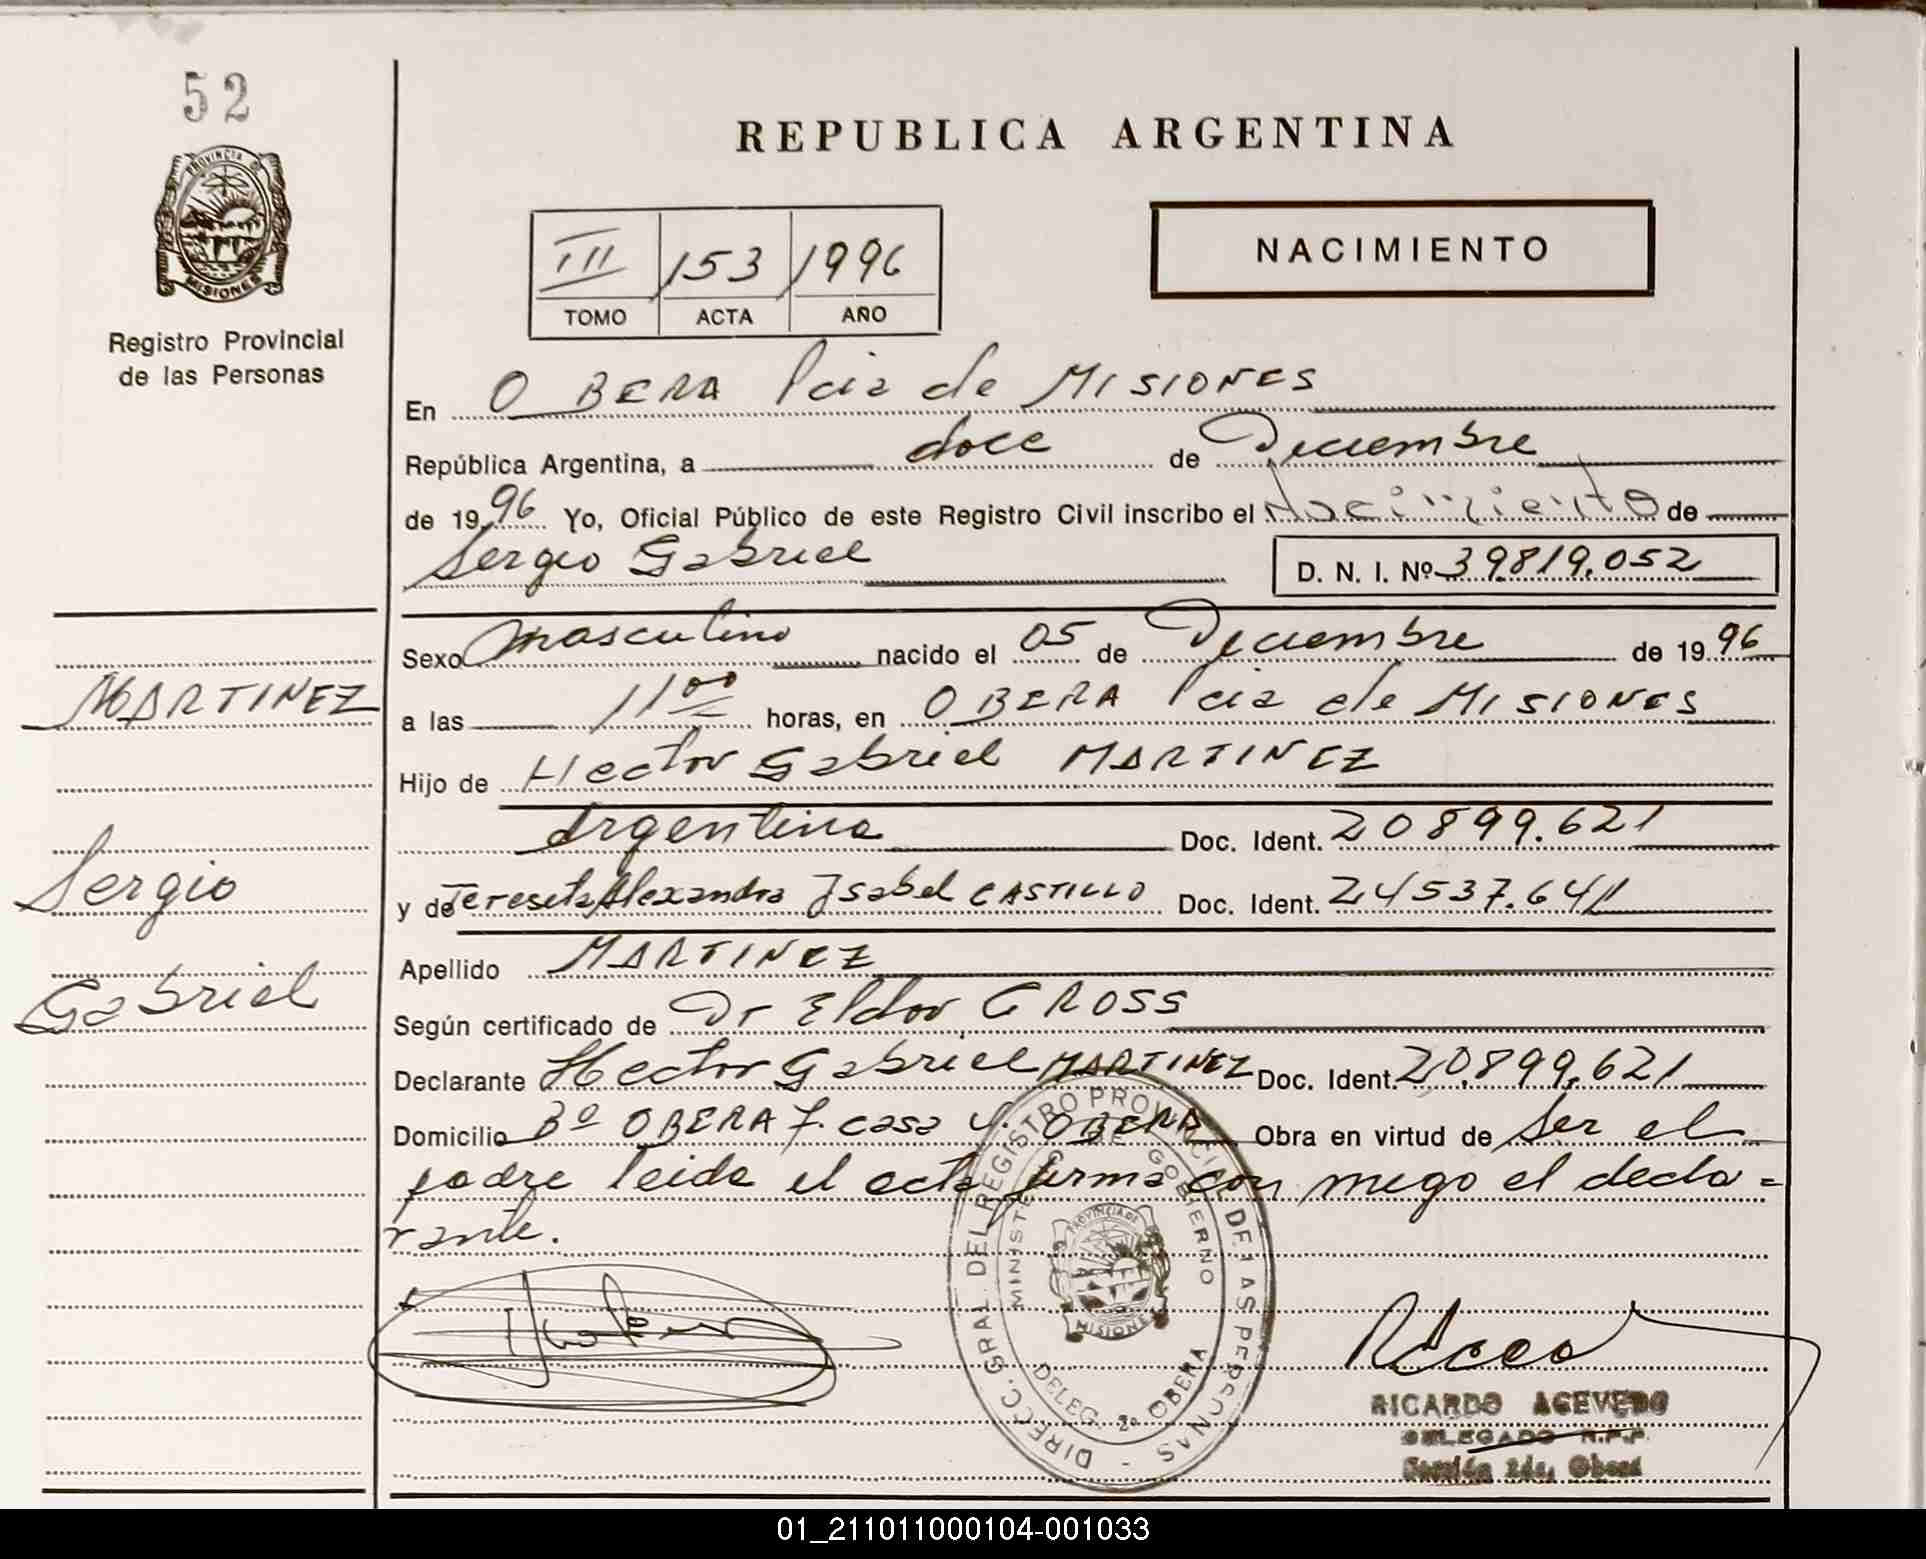 52
PROVINCIA DE
MISIONES
Registro Provincial
de las Personas
REPUBLICA ARGENTINA
III 153 1996
TOMO ACTA AÑO
NACIMIENTO
En OBERA Pcia de MISIONES
República Argentina, a doce de Diciembre
de 1996 Yo, Oficial Público de este Registro Civil inscribo el Nacimiento de
Sergio Gabriel D. N. I. Nº 39.819.052
Sexo masculino nacido el 05 de Diciembre de 1996
MARTINEZ
a las 11 00 horas, en OBERA Pcia de MISIONES
Hijo de Hector Gabriel MARTINEZ
Argentina Doc. Ident. 20899.621
Sergio
y de Teresita Alexandra Ysabel CASTILLO Doc. Ident. 24537.641
Apellido MARTINEZ
Gabriel
Según certificado de Dr Eldor GROSS
Declarante Hector Gabriel MARTINEZ Doc. Ident. 20.899.621
Domicilio Bº OBERA 7. casa 4. OBERA Obra en virtud de ser el
padre leida el acta firma con migo el decla=
rante.
DIRECC. GRAL. DEL REGISTRO PROVINCIAL DE LAS PERSONAS -
MINISTERIO DE GOBIERNO
PROVINCIA DE
MISIONES
DELEG. 2º OBERA
RICARDO ACEVEDO
DELEGADO R.P.P.
Sección 2da. Oberá
01_211011000104-001033